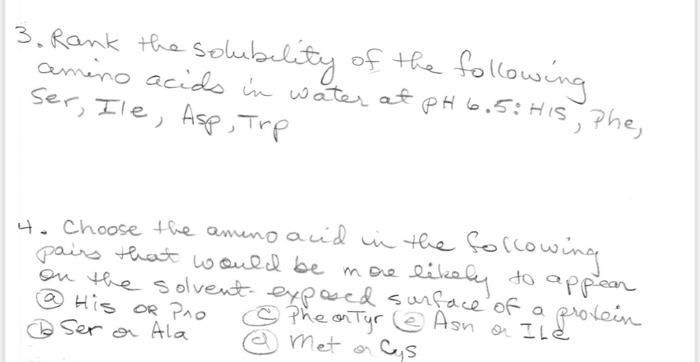 3. Rank the solubility of the following
amino acids in water at pH 6.5: His, Phe,
Ser, Ile, Asp, Trp
4. Choose the amino acid in the following
pairs that would be more likely to appear
on the solvent-exposed surface of a protein
ⓐ His OR Pro ⓒ Phe or Tyr ⓔ Asn or Ile
ⓑ Ser or Ala ⓓ Met or Cys